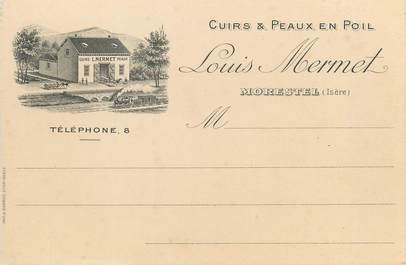 CUIRS & PEAUX EN POIL
Louis Mermet
MORESTEL (Isère)
CUIRS L. MERMET PEAUX
TÉLÉPHONE, 8
M